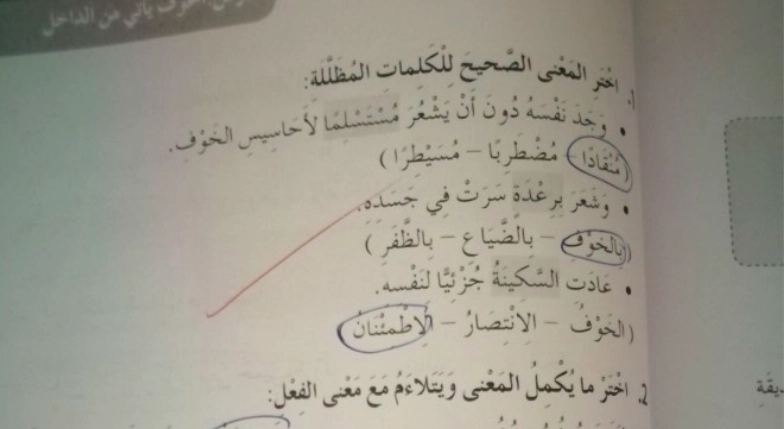 الخوف يأتي من الداخل
1. اخْتَرِ المَعْنى الصَّحيحَ لِلْكَلِماتِ المُظَلَّلَةِ:
• وَجَدَ نَفْسَهُ دُونَ أَنْ يَشْعُرَ مُسْتَسْلِمًا لأَحَاسِيسِ الخَوْفِ.
(مُنْقَادًا - مُضْطَرِبًا - مُسَيْطِرًا)
• وَشَعَرَ بِرِعْدَةٍ سَرَتْ فِي جَسَدِهِ.
(بِالخَوْفِ - بِالضَّيَاعِ - بِالظَّفَرِ)
• عَادَتِ السَّكِينَةُ جُزْئِيًّا لنَفْسه.
(الخَوْفُ - الِانْتِصَارُ - الِاطْمِئْنَانُ)
2. اخْتَرْ ما يُكْمِلُ المَعْنى وَيَتَلاءَمُ مَعَ مَعْنى الفِعْلِ: